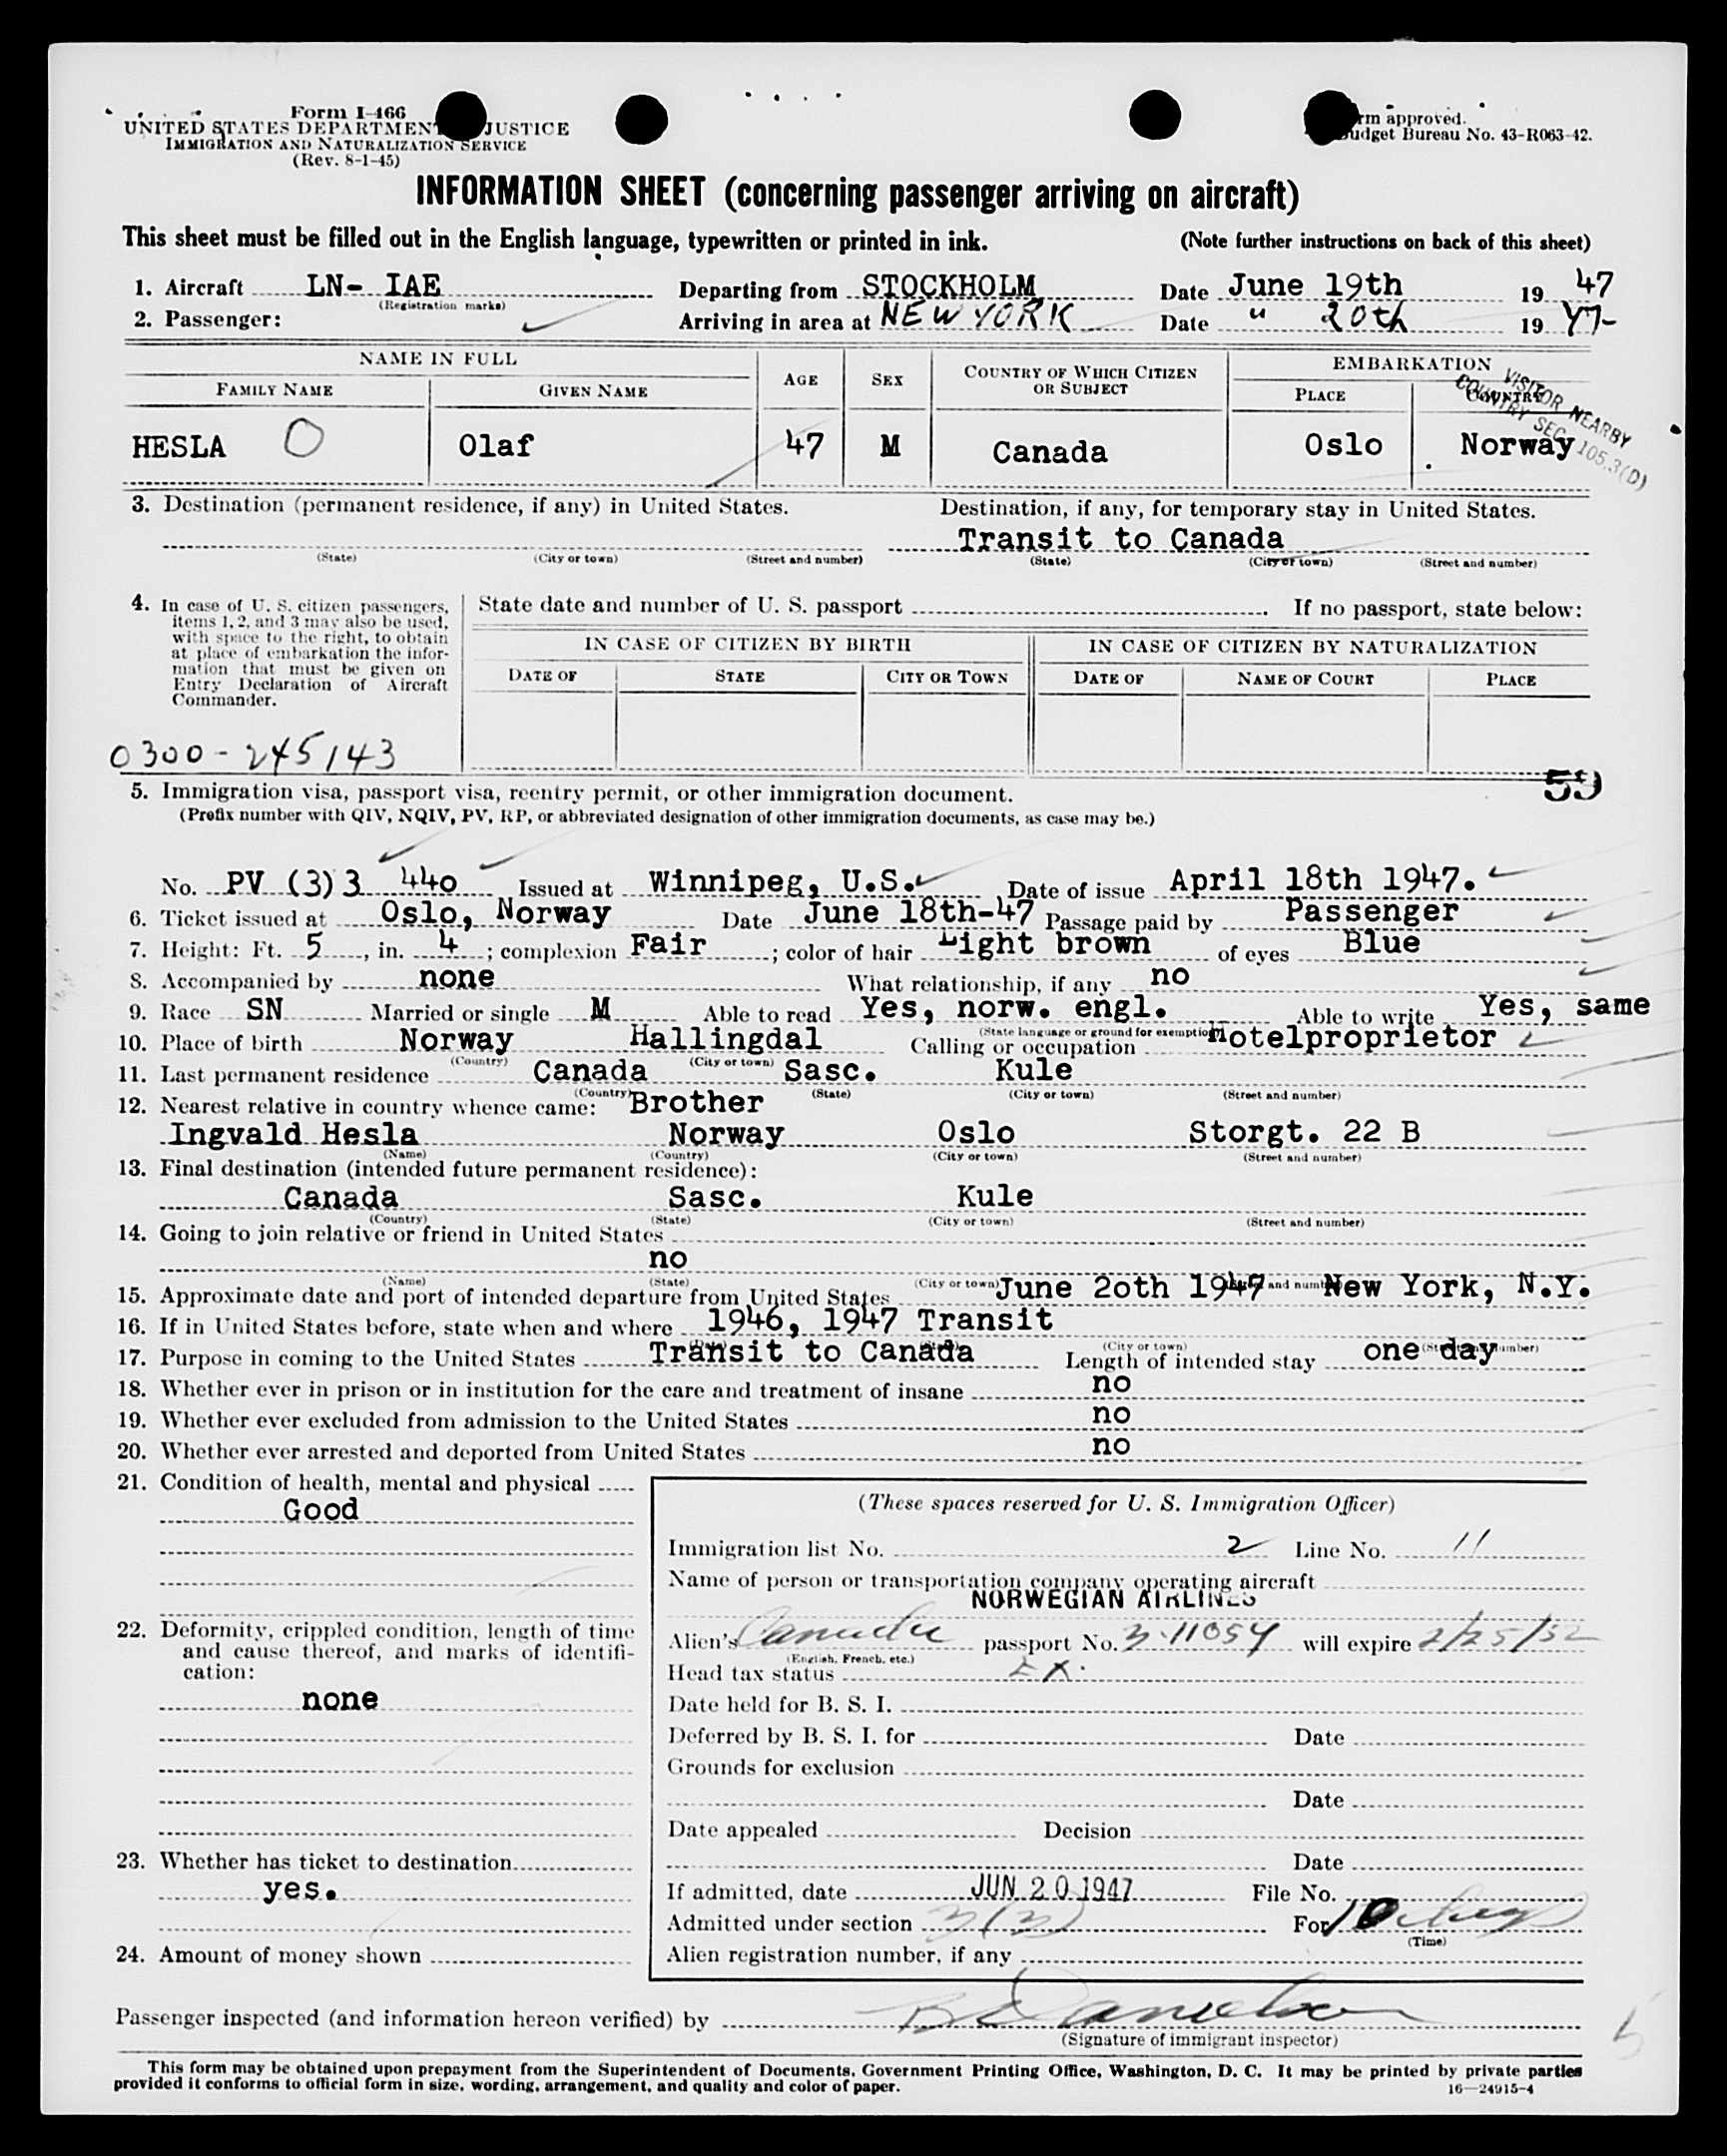 Form I-466
UNITED STATES DEPARTMENT JUSTICE
IMMIGRATION AND NATURALIZATION SERVICE
(Rev. 8-1-45)
rm approved.
Budget Bureau No. 43-R063-42.
INFORMATION SHEET (concerning passenger arriving on aircraft)
This sheet must be filled out in the English language, typewritten or printed in ink. (Note further instructions on back of this sheet)
1. Aircraft LN- IAE Departing from STOCKHOLM Date June 19th 19 47
(Registration marks)
2. Passenger: Arriving in area at NEW YORK Date " 20th 19 47-
NAME IN FULL AGE SEX COUNTRY OF WHICH CITIZEN OR SUBJECT EMBARKATION
FAMILY NAME GIVEN NAME PLACE COUNTRY
VISITOR NEARBY
COUNTRY SEC. 105.3(D)
HESLA O Olaf 47 M Canada Oslo Norway
3. Destination (permanent residence, if any) in United States. Destination, if any, for temporary stay in United States.
Transit to Canada
(State) (City or town) (Street and number) (State) (City or town) (Street and number)
4. In case of U. S. citizen passengers, items 1, 2, and 3 may also be used, with space to the right, to obtain at place of embarkation the information that must be given on Entry Declaration of Aircraft Commander.
State date and number of U. S. passport . If no passport, state below:
IN CASE OF CITIZEN BY BIRTH IN CASE OF CITIZEN BY NATURALIZATION
DATE OF STATE CITY OR TOWN DATE OF NAME OF COURT PLACE
0300-245143
59
5. Immigration visa, passport visa, reentry permit, or other immigration document.
(Prefix number with QIV, NQIV, PV, RP, or abbreviated designation of other immigration documents, as case may be.)
No. PV (3)3 440 Issued at Winnipeg, U.S. Date of issue April 18th 1947.
6. Ticket issued at Oslo, Norway Date June 18th-47 Passage paid by Passenger
7. Height: Ft. 5, in. 4; complexion Fair; color of hair Light brown of eyes Blue
8. Accompanied by none What relationship, if any no
9. Race SN Married or single M Able to read Yes, norw. engl. Able to write Yes, same
(State language or ground for exemption)
10. Place of birth Norway Hallingdal Calling or occupation Hotelproprietor
(Country) (City or town)
11. Last permanent residence Canada Sasc. Kule
(Country) (State) (City or town) (Street and number)
12. Nearest relative in country whence came: Brother
Ingvald Hesla Norway Oslo Storgt. 22 B
(Name) (Country) (City or town) (Street and number)
13. Final destination (intended future permanent residence):
Canada Sasc. Kule
(Country) (State) (City or town) (Street and number)
14. Going to join relative or friend in United States
no
(Name) (State) (City or town) (Street and number)
15. Approximate date and port of intended departure from United States June 20th 1947 New York, N.Y.
16. If in United States before, state when and where 1946, 1947 Transit
(Date) (State) (City or town) (Street and number)
17. Purpose in coming to the United States Transit to Canada Length of intended stay one day
18. Whether ever in prison or in institution for the care and treatment of insane no
19. Whether ever excluded from admission to the United States no
20. Whether ever arrested and deported from United States no
21. Condition of health, mental and physical
Good
(These spaces reserved for U. S. Immigration Officer)
Immigration list No. 2 Line No. 11
Name of person or transportation company operating aircraft
NORWEGIAN AIRLINES
22. Deformity, crippled condition, length of time and cause thereof, and marks of identification:
none
Alien's Canada passport No. 3-11054 will expire 2/25/52
(English, French, etc.)
Head tax status EX.
Date held for B. S. I.
Deferred by B. S. I. for Date
Grounds for exclusion
Date
Date appealed Decision
23. Whether has ticket to destination
yes.
Date
If admitted, date JUN 20 1947 File No.
Admitted under section 3(3) For 10 days
(Time)
24. Amount of money shown
Alien registration number, if any
Passenger inspected (and information hereon verified) by
(Signature of immigrant inspector)
This form may be obtained upon prepayment from the Superintendent of Documents, Government Printing Office, Washington, D. C. It may be printed by private parties
provided it conforms to official form in size, wording, arrangement, and quality and color of paper. 16—24915-4